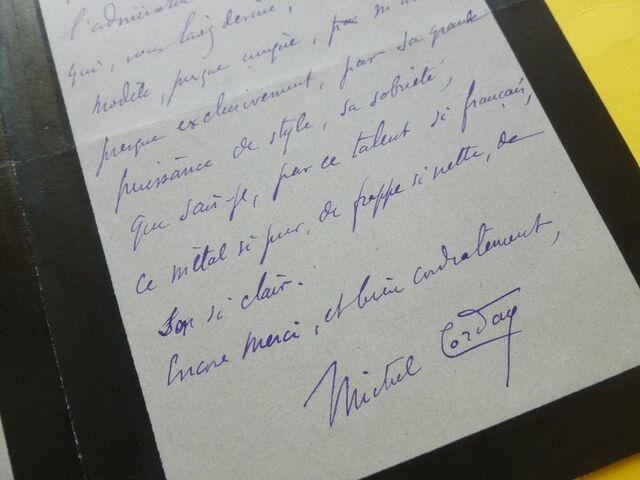 l'admiration
qui, vous
modèle, presque unique, pas m'a
presque exclusivement, par sa grande
puissance de style, sa sobriété,
que sais-je, par ce talent si français,
ce métal si pur, de frappe si nette, de
son si clair.
Encore merci, et bien cordialement,
Michel Corday